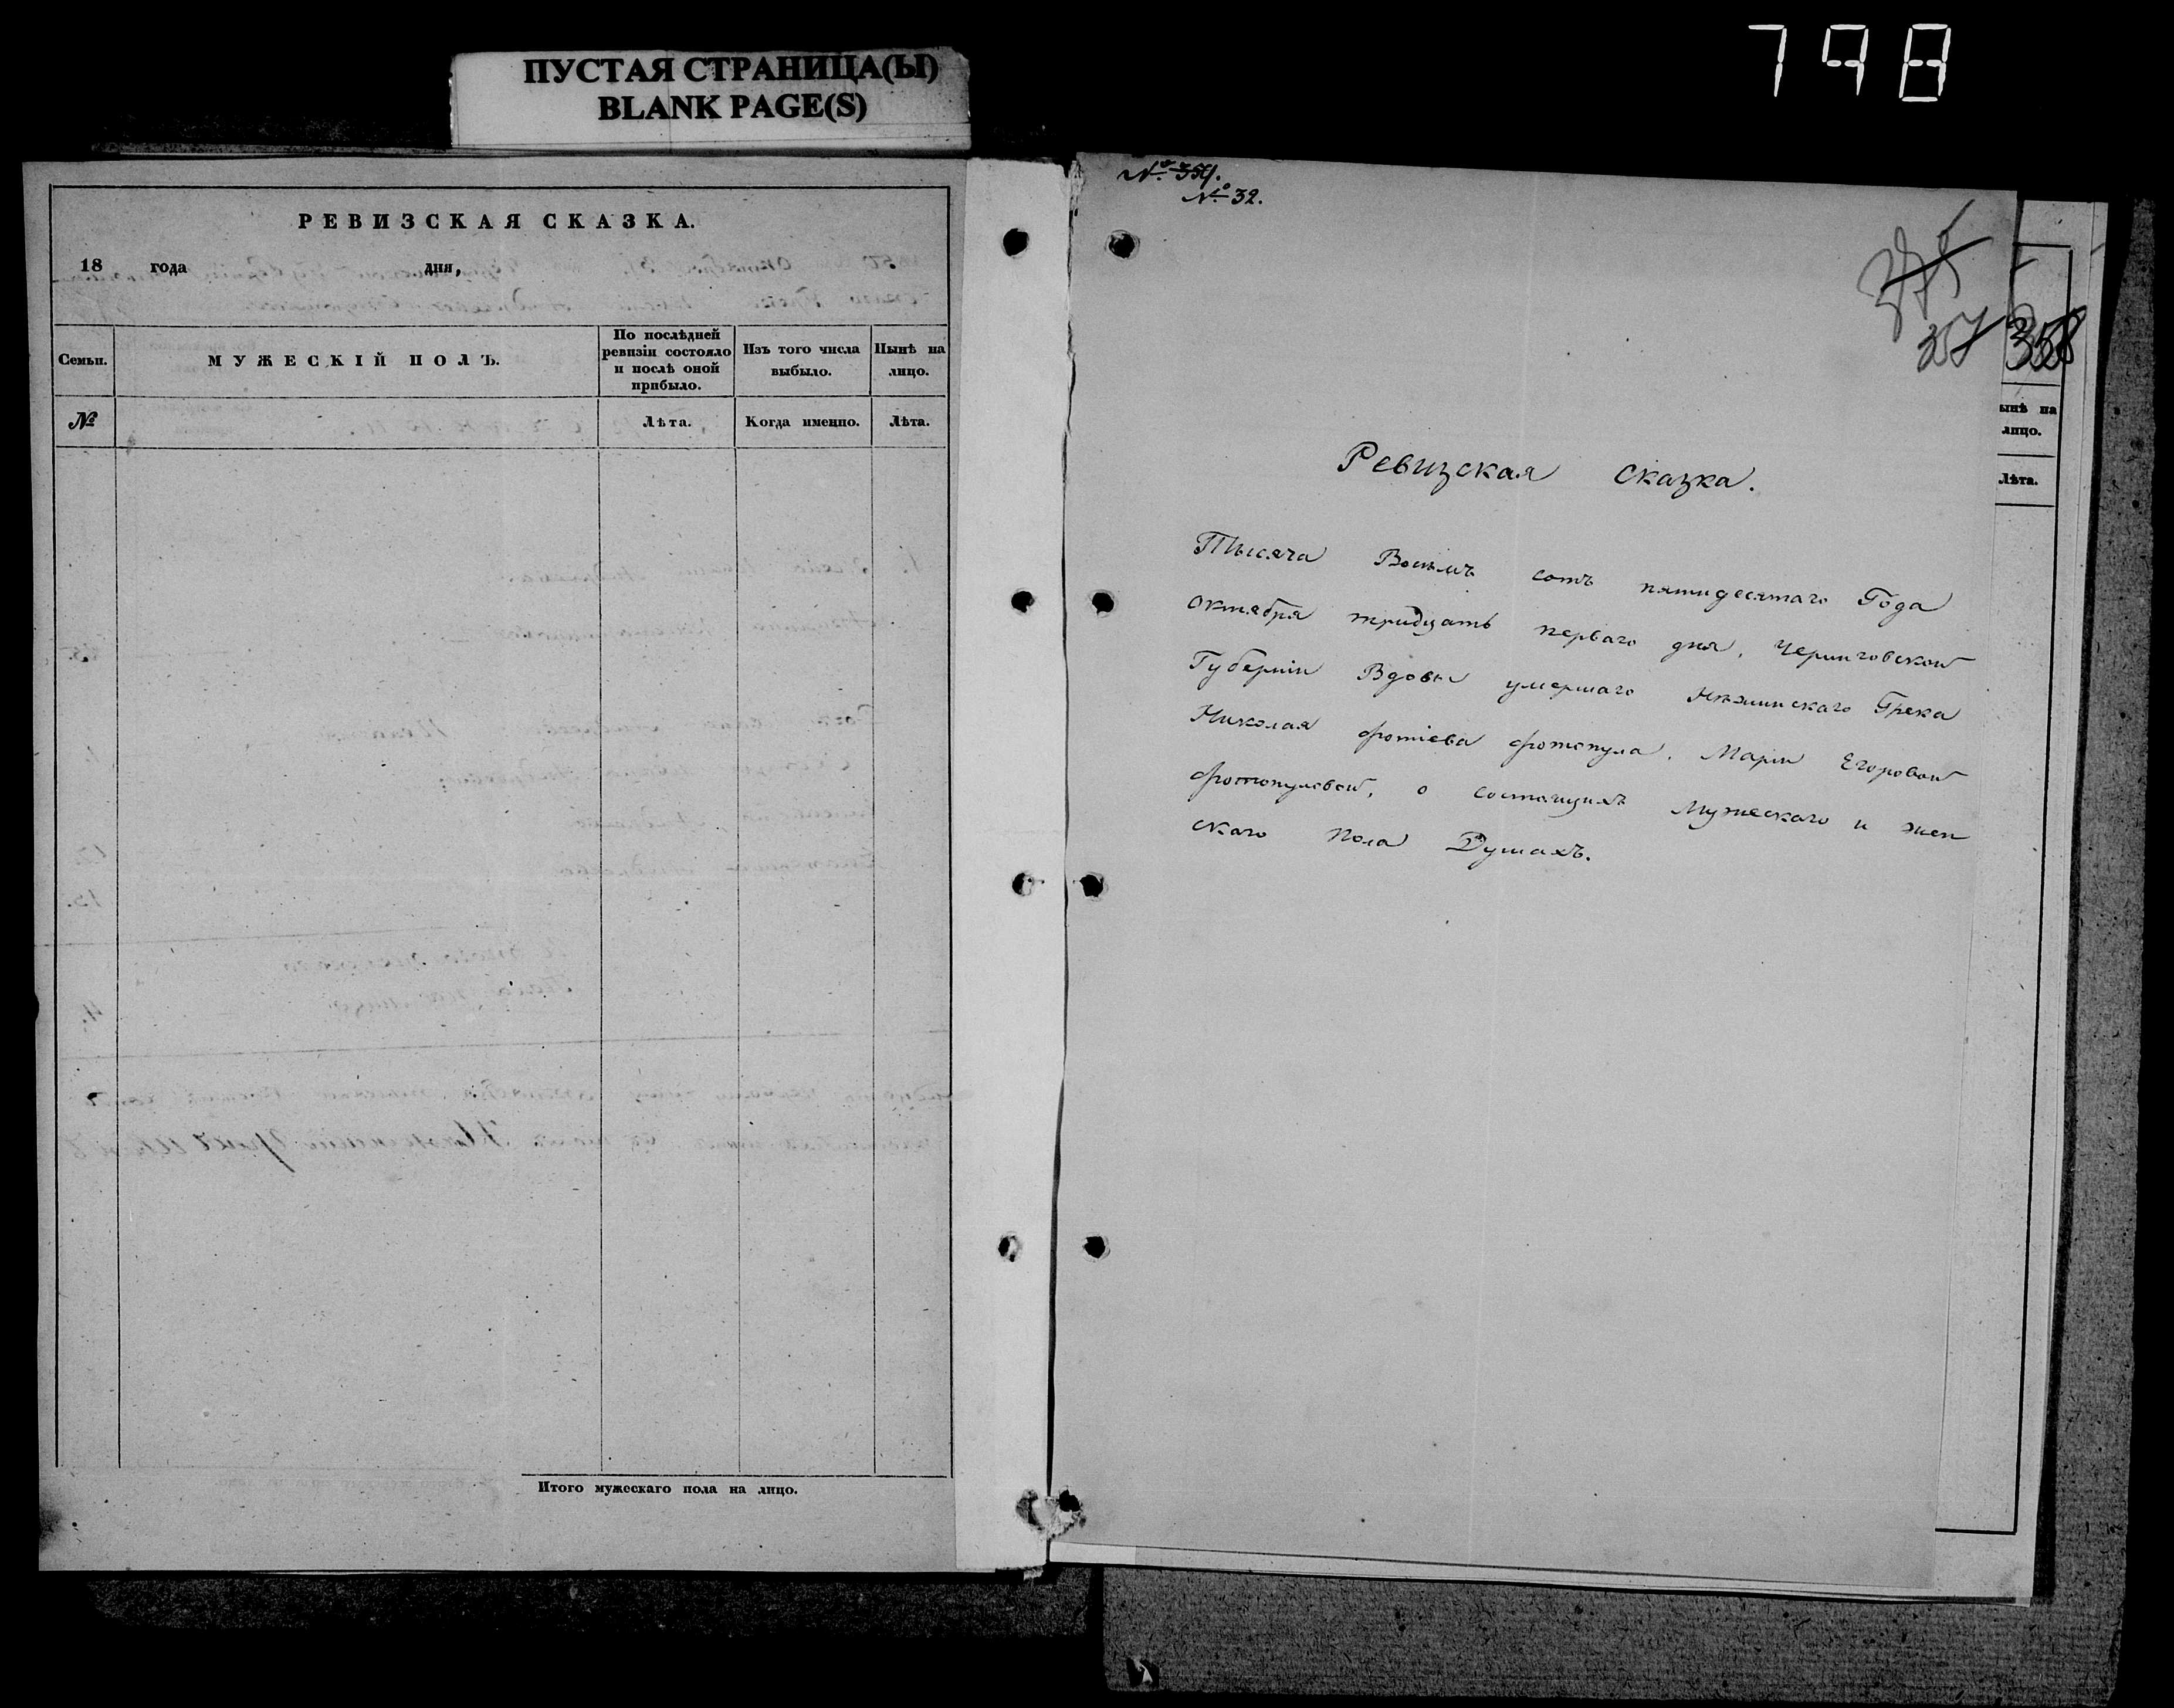 798
ПУСТАЯ СТРАНИЦА(Ы)
BLANK PAGE(S)
РЕВИЗСКАЯ СКАЗКА.
18 года дня,
Семьи.
МУЖЕСКІЙ ПОЛЪ.
По послѣдней ревизіи состояло и послѣ оной прибыло.
Изъ того числа выбыло.
Нынѣ на лицо.
№
Лѣта.
Когда именно.
Лѣта.
Итого мужескаго пола на лицо.
№ 32.
357
358
Ревизская сказка.
Тысяча Восемъ сотъ пятидесятаго Года
октября тридцать перваго дня, Черниговской
Губерніи Вдовы умершаго Нѣжинскаго Грека
Николая Фотіева Фотопула, Маріи Егоровой
Фотопуловой, о состоящихъ Мужескаго и жен
скаго пола Душахъ.
ынѣ на
лицо.
Лѣта.